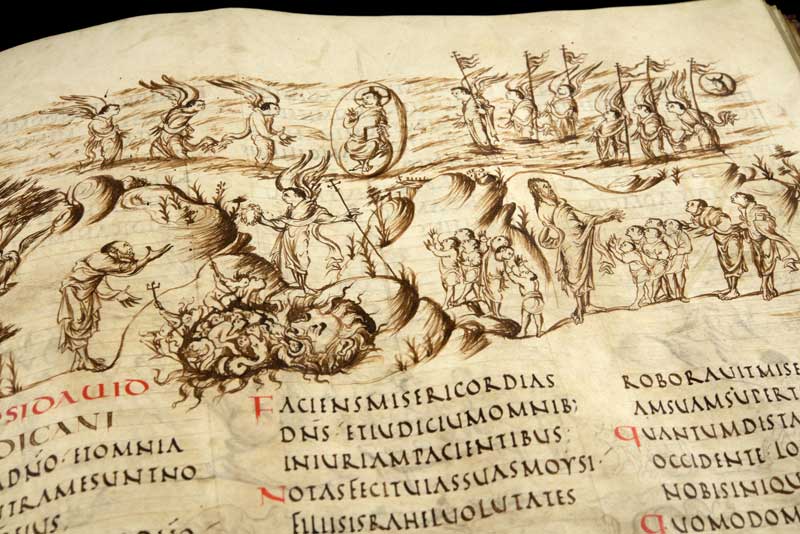 PSIDAUID
DICANI
ADÑO·ETOMNIA
TRAMESUNTNO
EIUS·
FACIENSMISERICORDIAS
DÑS·ETIUDICIUMOMNIB;
INIURIAMPACIENTIBUS·
NOTASFECITUIASSUASMOYSI·
FILIISISRAHELUOLUTATES
ROBORAUITMISE
AMSUAMSUPERT
QUANTUMDISTA
OCCIDENTE·LO
NOBISINIQU
QUOMODOM